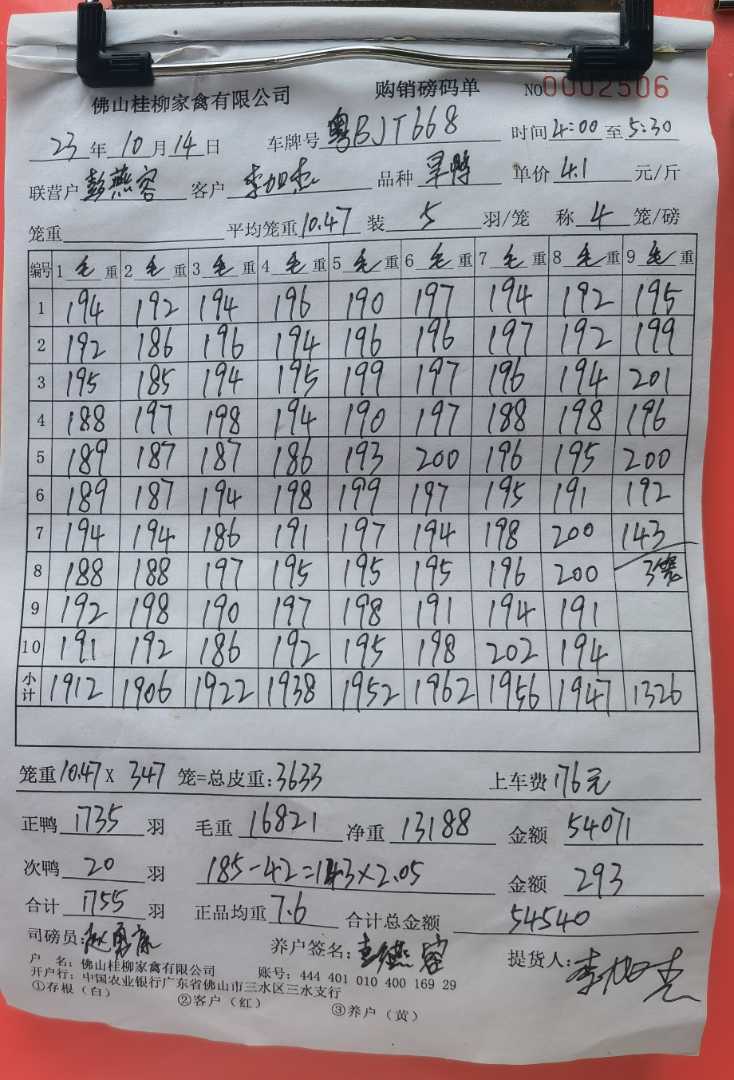 佛山桂柳家禽有限公司 购销磅码单 NO 0002506
23年10月14日 车牌号 粤BJT668 时间 4:00至5:30
联营户 彭燕容 客户 品种 旱鸭 单价 4.1 元/斤
笼重 平均笼重 10.47 装 5 羽/笼 称 4 笼/磅
编号 1 毛重 2 毛重 3 毛重 4 毛重 5 毛重 6 毛重 7 毛重 8 毛重 9 毛重
1 194 192 194 196 190 197 194 192 195
2 192 186 196 194 196 196 197 192 199
3 195 185 194 195 199 197 196 194 201
4 188 197 198 194 190 197 188 198 196
5 189 187 187 186 193 200 196 195 200
6 189 187 194 198 199 197 195 191 192
7 194 194 186 191 197 194 198 200 143
8 188 188 197 195 195 195 196 200 3笼
9 192 198 190 197 198 191 194 191
10 191 192 186 192 195 198 202 194
小计 1912 1906 1922 1938 1952 1962 1956 1947 1326
笼重 10.47 X 347 笼=总皮重:3633 上车费 176元
正鸭 1735 羽 毛重 16821 净重 13188 金额 54071
次鸭 20 羽 185-42=143×2.05 金额 293
合计 1755 羽 正品均重 7.6 合计总金额 54540
司磅员: 养户签名: 彭燕容 提货人:
户 名: 佛山桂柳家禽有限公司 账号: 444 401 010 400 169 29
开户行: 中国农业银行广东省佛山市三水区三水支行
①存根（白） ②客户（红） ③养户（黄）